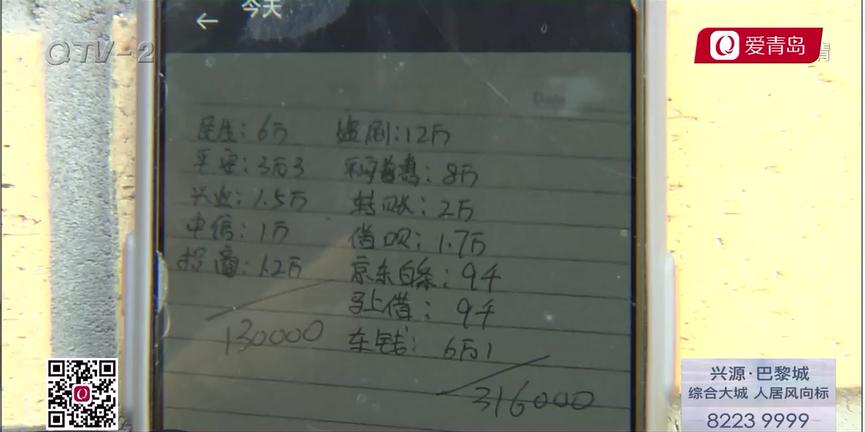 今天
QTV-2
爱青岛
民生：6万
平安：3万3
兴业：1.5万
中信：1万
招商：1.2万
130000
盗刷：12万
：8万
转账：2万
借呗：1.7万
京东白条：9千
马上借：9千
车钱：6万1
316000
兴源·巴黎城
综合大城 人居风向标
8223 9999